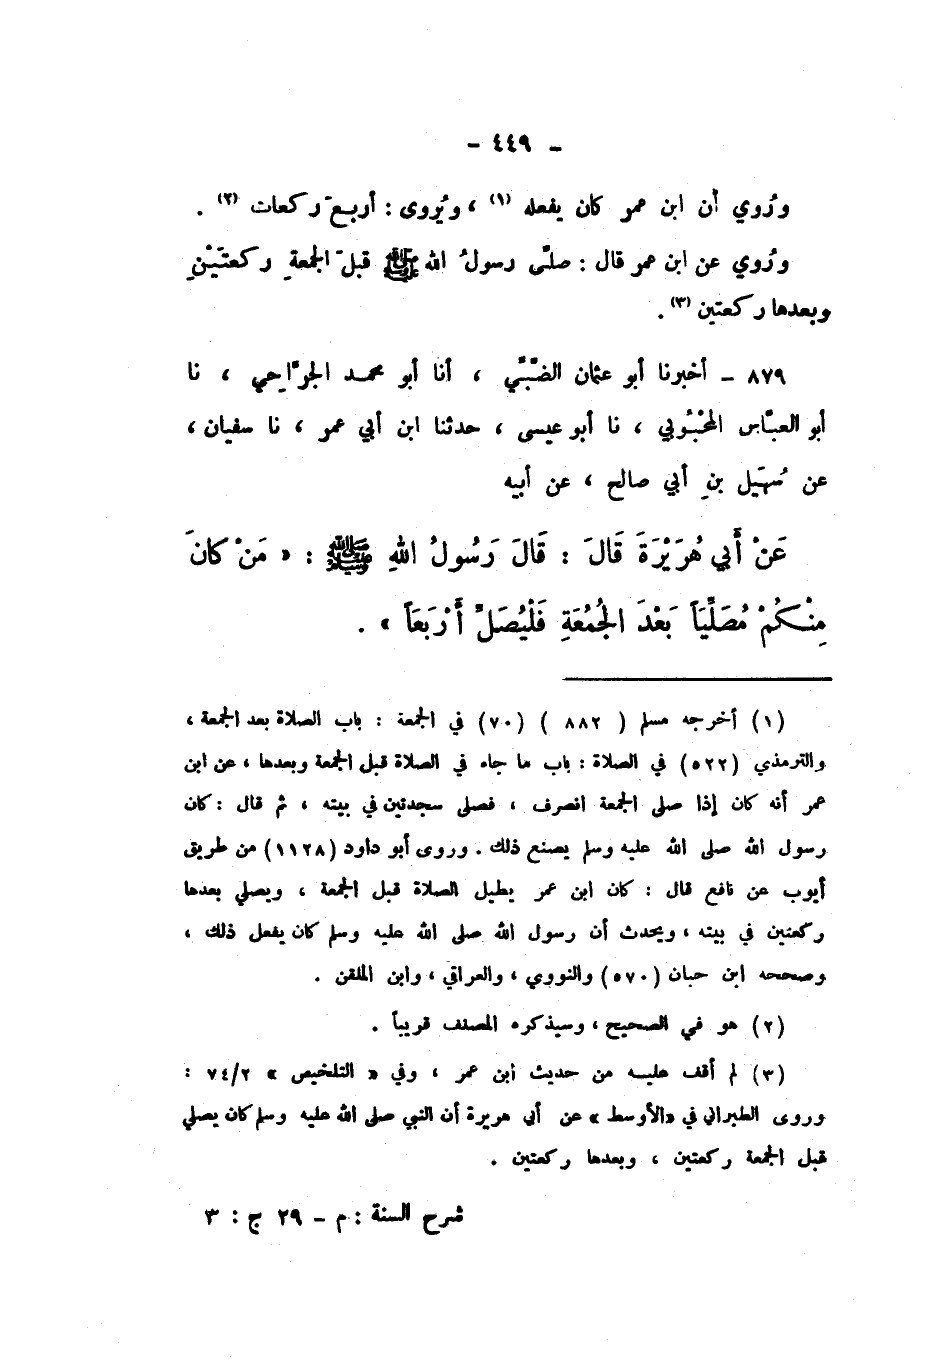 - ٤٤٩ -
ورُوي أن ابن عمر كان يفعله (١) ، ويُروى : أربعَ ركعات (٢) .
ورُوي عن ابن عمر قال : صلّى رسولُ الله ﷺ قبلَ الجمعةِ ركعتَيْنِ
وبعدها ركعتين (٣) .
٨٧٩ - أخبرنا أبو عثمان الضّبّي ، أنا أبو محمد الجرّاحي ، نا
أبو العبّاس المحْبُوبي ، نا أبو عيسى ، حدثنا ابن أبي عمر ، نا سفيان ،
عن سُهَيل بنِ أبي صالح ، عن أبيه
عَنْ أَبي هُرَيْرَةَ قَالَ : قَالَ رَسُولُ اللهِ ﷺ : « مَنْ كَانَ
مِنْكُمْ مُصَلِّيَاً بَعْدَ الجُمُعَةِ فَلْيُصَلِّ أَرْبَعَاً » .
(١) أخرجه مسلم ( ٨٨٢ ) (٧٠) في الجمعة : باب الصلاة بعد الجمعة ،
والترمذي (٥٢٢) في الصلاة : باب ما جاء في الصلاة قبل الجمعة وبعدها ، عن ابن
عمر أنه كان إذا صلى الجمعة انصرف ، فصلى سجدتين في بيته ، ثم قال : كان
رسول الله صلى الله عليه وسلم يصنع ذلك . وروى أبو داود (١١٢٨) من طريق
أيوب عن نافع قال : كان ابن عمر يطيل الصلاة قبل الجمعة ، ويصلي بعدها
ركعتين في بيته ، ويحدث أن رسول الله صلى الله عليه وسلم كان يفعل ذلك ،
وصححه ابن حبان (٥٧٠) والنووي ، والعراقي ، وابن الملقن .
(٢) هو في الصحيح ، وسيذكره المصنف قريباً .
(٣) لم أقف عليه من حديث ابن عمر ، وفي « التلخيص » ٧٤/٢ :
وروى الطبراني في «الأوسط » عن أبي هريرة أن النبي صلى الله عليه وسلم كان يصلي
قبل الجمعة ركعتين ، وبعدها ركعتين .
شرح السنة : م - ٢٩ ج : ٣